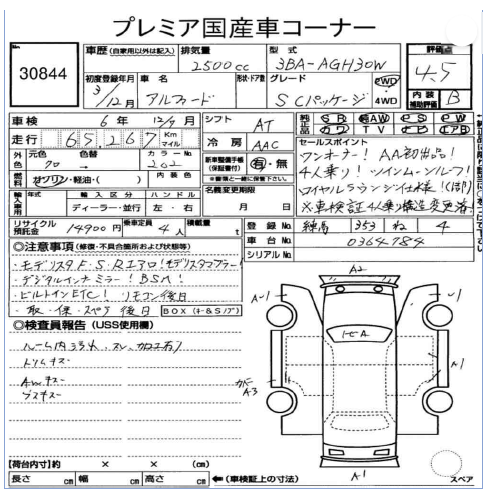 プレミア国産車コーナー
No.
30844
車歴(自家用以外は記入)
排気量
2500cc
型式
3BA-AGH30W
評価点
4.5
初度登録年月
3/12月
車名
アルファード
形状・ドア数
グレード
SCパッケージ
2WD
4WD
内装補助評価
B
車検
6年 12/9月
シフト
AT
純正品
SR
純AW
PS
PW
カワ
TV
ナビ
エアB
走行
65,267
Km
マイル
冷房
AAC
セールスポイント
ワンオーナー! AA初出品!
4人乗り! ツインムーンルーフ!
ロイヤルラウンジ仕様!
※車検証4人乗り構造変更済!
外色
元色
クロ
色替
→
カラーNo.
202
新車整備手帳(保証書付)
有・無
※書類と一緒に保管下さい。
燃料
ガソリン・軽油・( )
内装色
名義変更期限
月 日
輸入車用
年式
輸入区分
ディーラー・並行
ハンドル
左・右
リサイクル預託金
14900円
乗車定員
4人
積載量
t
登録No.
練馬 353 ね 4
車台No.
0364784
シリアルNo.
◎注意事項(修復・不具合箇所および状態等)
・モデリスタF.S.Rエアロ!モデリスタマフラー!
・デジタルインナーミラー!BSM!
・ビルトインETC! リモコン後日
・取・保・スペア後日
BOX(キー&Sノブ)
◎検査員報告(USS使用欄)
トリムキズ
AWキズ
A2
A1
A1
A3
A1
【荷台内寸】約 × × (cm)
長さ cm 幅 cm 高さ cm ←(車検証上の寸法)
スペア